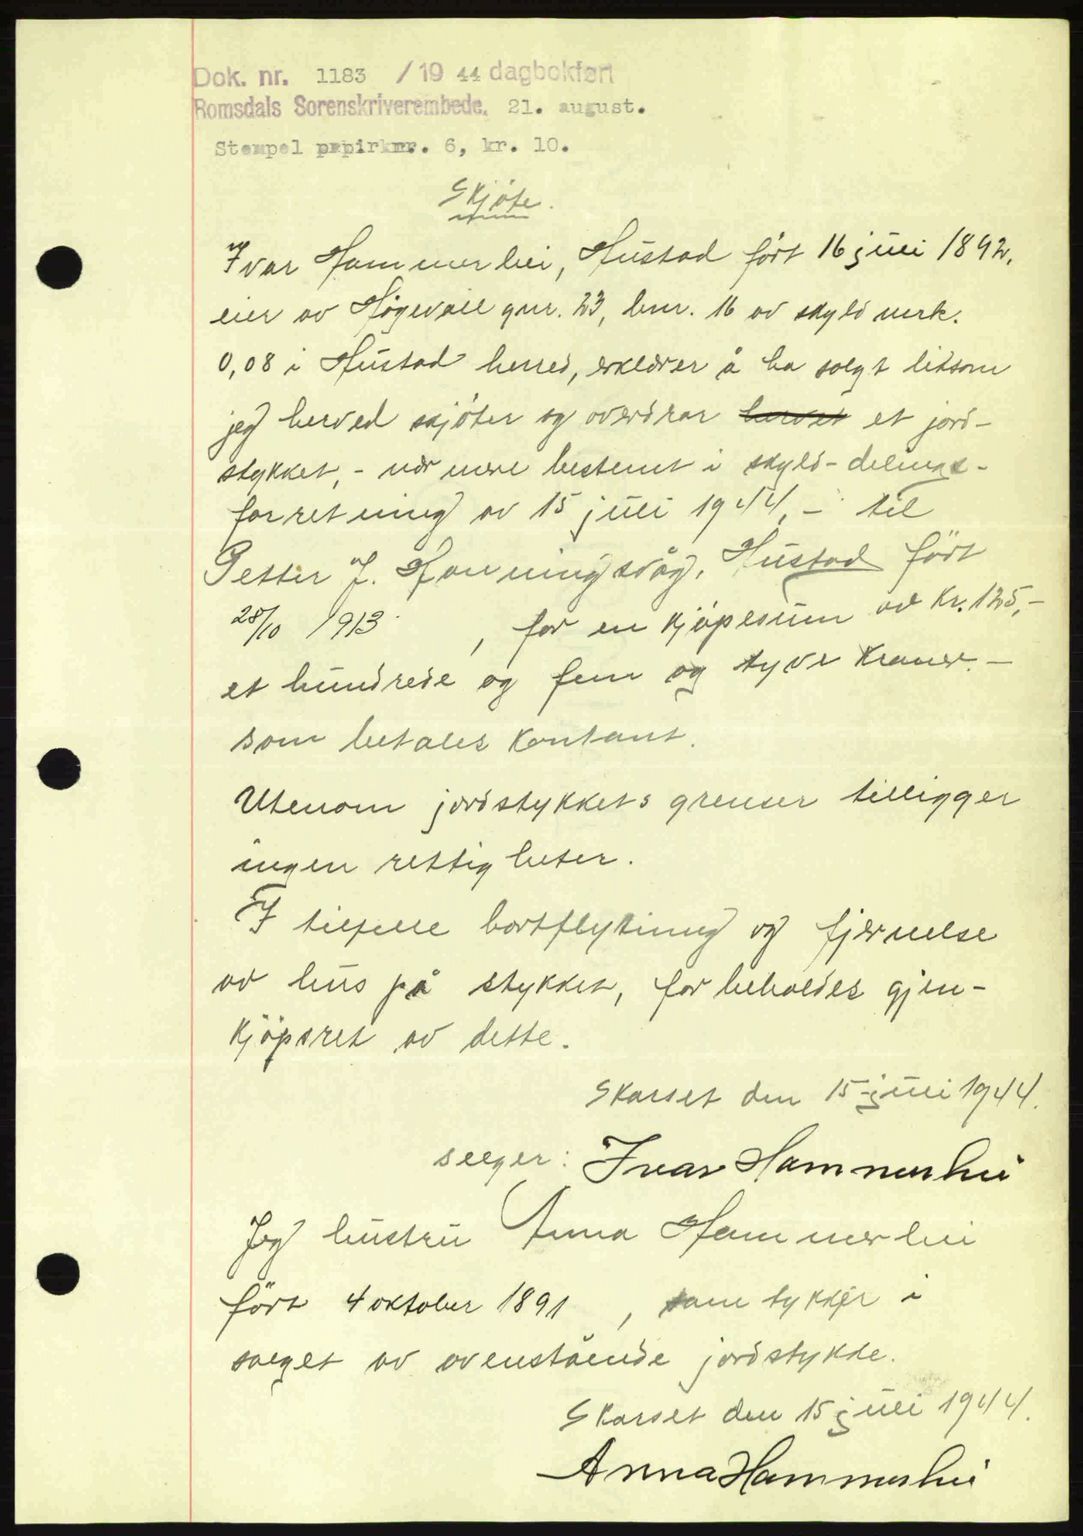 Dok. nr. 1183 / 19 44 dagbokført
Romsdals Sorenskriverembede. 21. august.
Stempel papirknr. 6, kr. 10.
Skjöte.
Ivar Hammerhei, Hustad fört 16 juli 1892,
eier av Högevoll gnr. 23, bnr. 16 av skyld merk.
0,08 i Hustad herred, erklærer å ha solgt litsom
jeg herved skjöter og overdrar hervet et jord-
stykket, - nærmere bestemt i skyld-delings-
forretning av 15 juli 1944, - til
Petter J. Honningsvåg, Hustad fört
28/10 1913 , for en kjöpesum av Kr. 125,-
et hundrede og fem og tyve Kroner. -
som betales Kontant.
Utenom jordstykkets grenser tilligger
ingen rettigheter.
I tilfelle bortflytting og fjernelse
av hus på stykket, forbeholdes gjen-
kjöpsret av dette.
Skarset den 15-juli 1944.
selger: Ivar Hammerhei
Jeg hustru Anna Hammerhei
fört 4 oktober 1891 , samtykkjer i
salget av ovenstående jordstykke.
Skarset den 15 juli 1944.
Anna Hammerhei